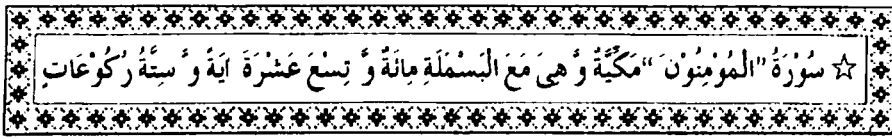 ☆ سُوْرَةُ "الْمُوْمِنُوْنَ" مَكِّيَّةٌ وَّ هِىَ مَعَ الْبَسْمَلَةِ مِائَةٌ وَّ تِسْعَ عَشْرَةَ ايَةً وَّ سِتَّةُ رُكُوْعَاتٍ